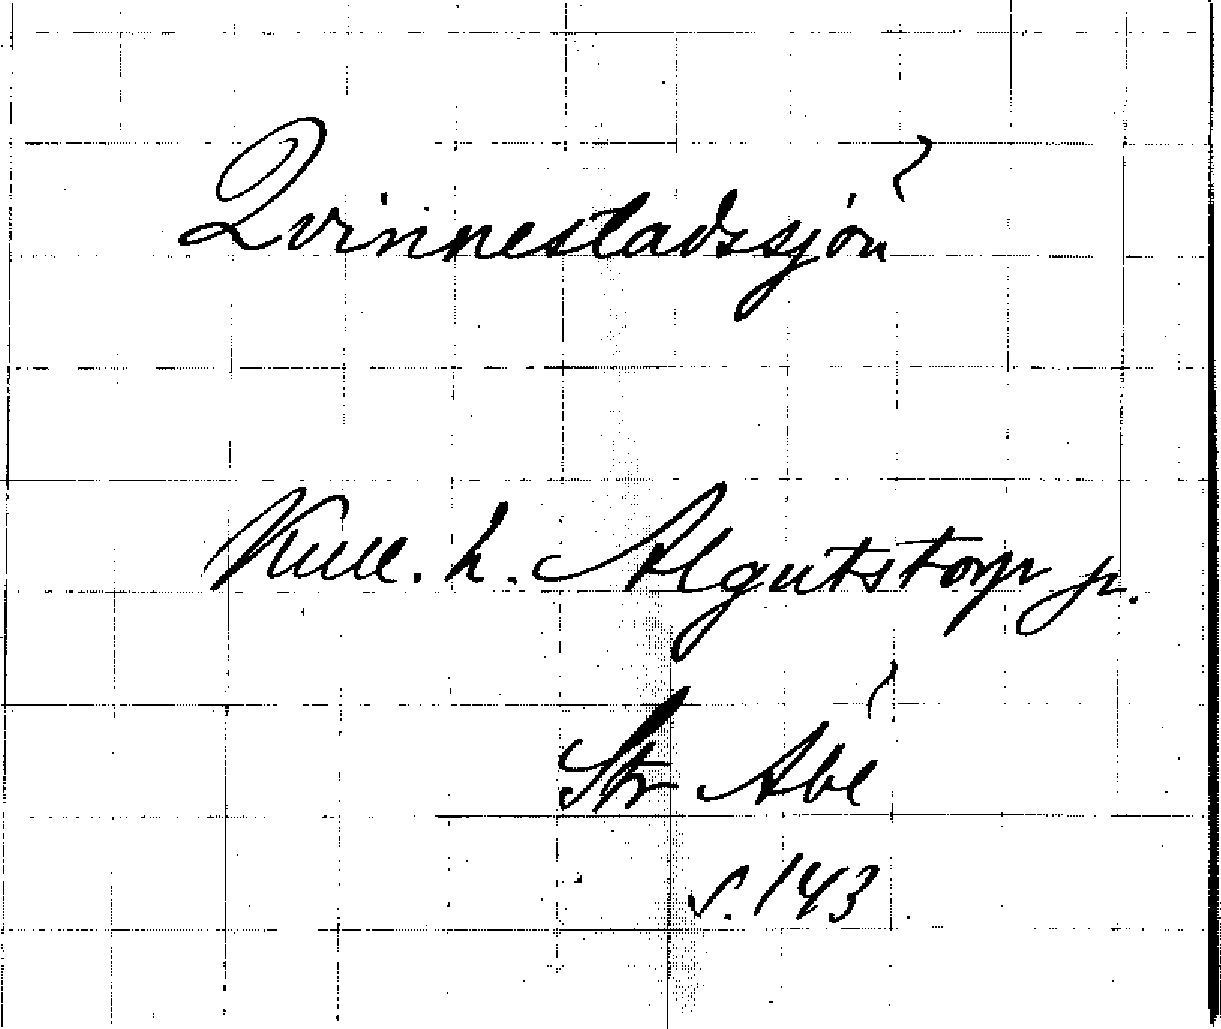 Qvinnestadssjön
Kull. h. Algutstorp p.
Str Abl
s. 143